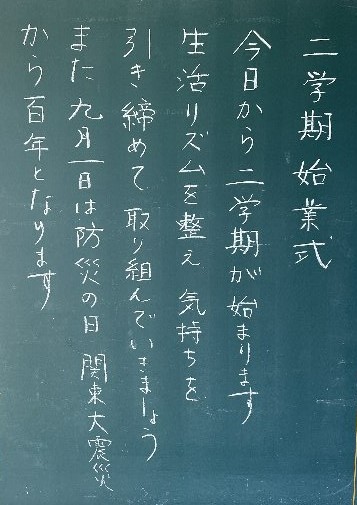 二学期始業式
今日から二学期が始まります
生活リズムを整え 気持ちを
引き締めて取り組んでいきましょう
また九月一日は防災の日 関東大震災
から百年となります